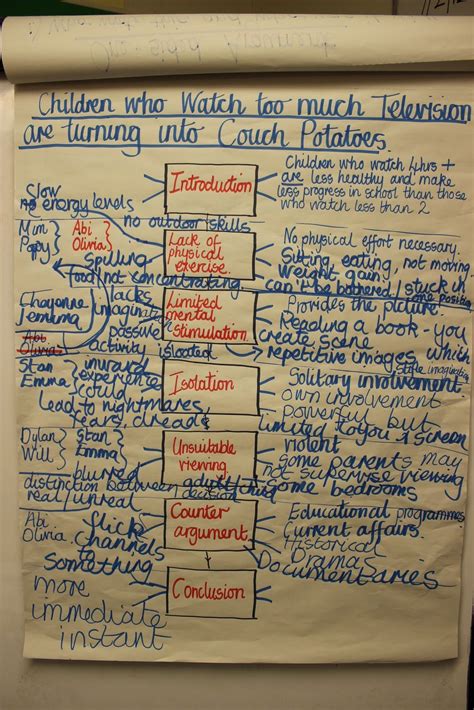 One-sided Argument
Children who Watch too much Television
are turning into Couch Potatoes.
Introduction
Children who watch 4hrs +
are less healthy and make
less progress in school than those
who watch less than 2
Slow
no energy levels
no outdoor skills
Mim
Popy
Abi
Olivia
Lack of
physical
exercise.
No physical effort necessary.
Sitting, eating, not moving
weight gain
can't be bothered / stuck in
one position
Spilling
food / not concentrating
Chayenne
Jemima
Abi
Olivia
lacks
imagination
passive
activity
Limited
mental
Stimulation.
Provides the picture.
Reading a book - you
create scene
repetitive images which
stifle imagination
isolated
Stan
Emma
inward
experience
could
lead to nightmares,
fears, dreads
Isolation
Solitary involvement
own involvement
powerful but
limited to you & screen
Dylan
Will
Stan
Emma
blurred
distinction between
real / unreal
Unsuitable
viewing.
violent
Some parents may
not supervise viewing
some bedrooms
decision
Abi
Olivia
flick
channels
to
Something
more
immediate
instant
Counter
argument
Educational programmes
Current affairs.
Historical
dramas
Documentaries
Conclusion